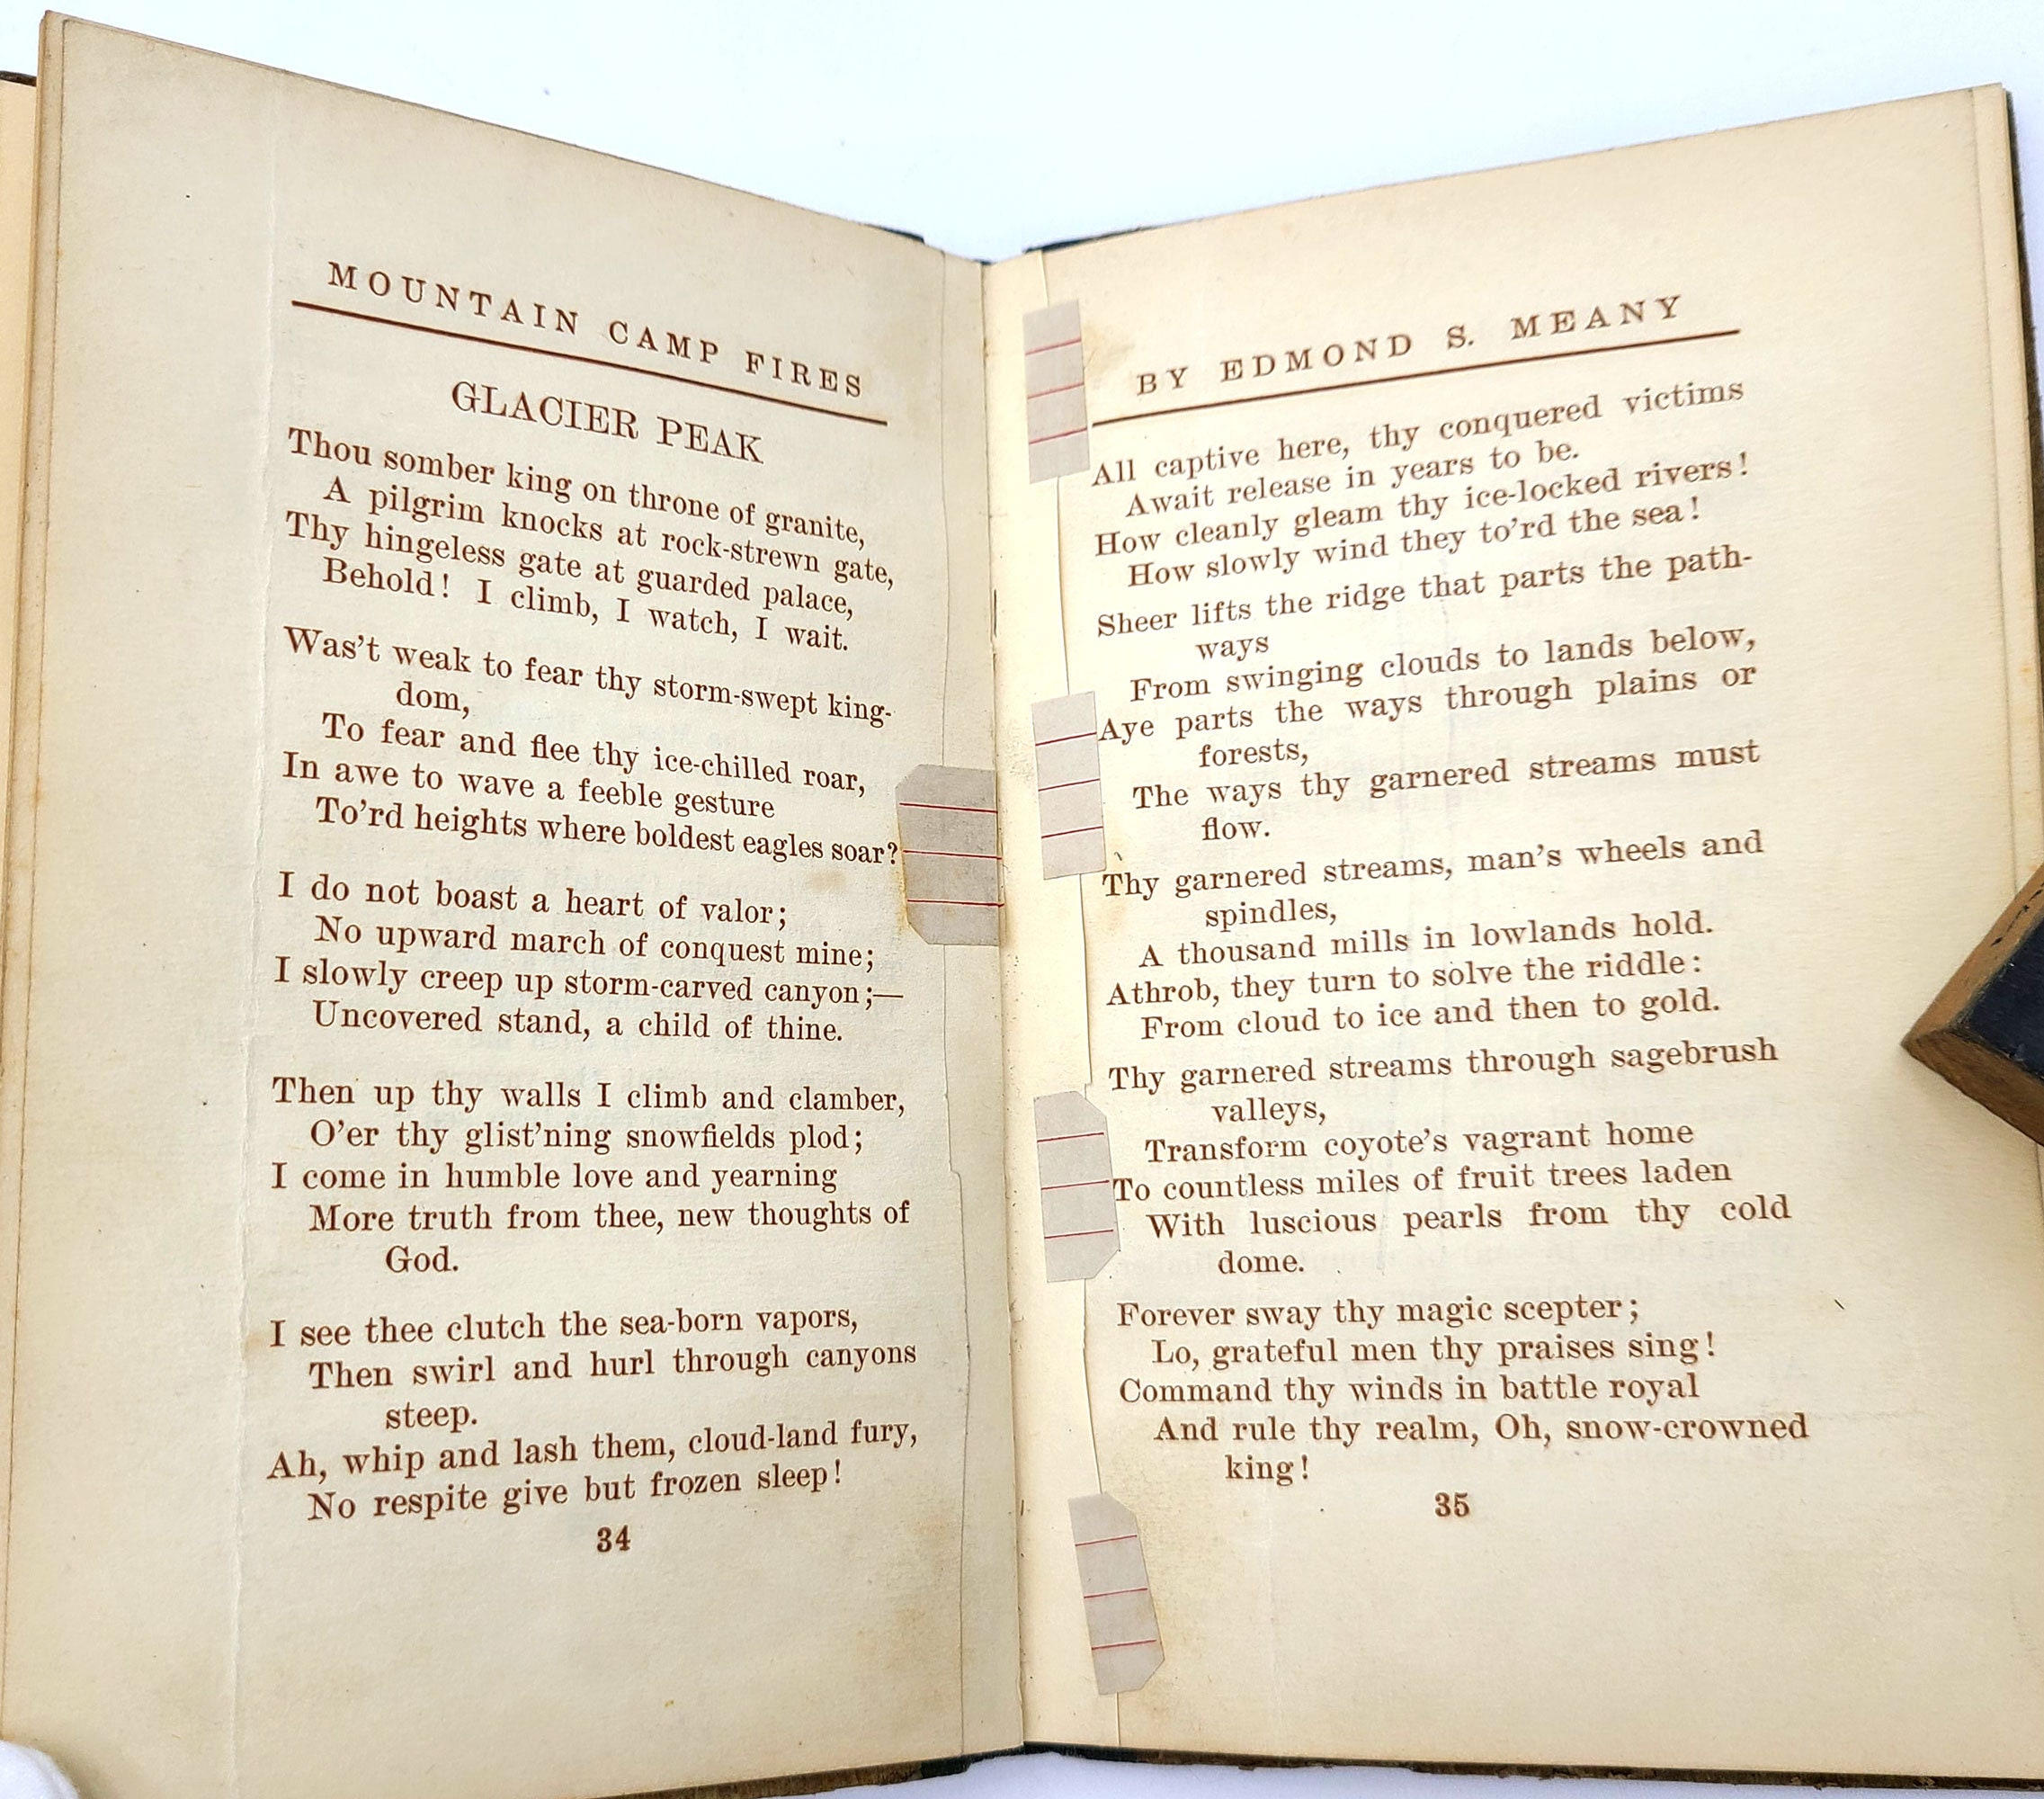 MOUNTAIN CAMP FIRES
GLACIER PEAK
Thou somber king on throne of granite,
A pilgrim knocks at rock-strewn gate,
Thy hingeless gate at guarded palace,
Behold! I climb, I watch, I wait.
Was't weak to fear thy storm-swept king-
dom,
To fear and flee thy ice-chilled roar,
In awe to wave a feeble gesture
To'rd heights where boldest eagles soar?
I do not boast a heart of valor;
No upward march of conquest mine;
I slowly creep up storm-carved canyon;—
Uncovered stand, a child of thine.
Then up thy walls I climb and clamber,
O'er thy glist'ning snowfields plod;
I come in humble love and yearning
More truth from thee, new thoughts of
God.
I see thee clutch the sea-born vapors,
Then swirl and hurl through canyons
steep.
Ah, whip and lash them, cloud-land fury,
No respite give but frozen sleep!
34
BY EDMOND S. MEANY
All captive here, thy conquered victims
Await release in years to be.
How cleanly gleam thy ice-locked rivers!
How slowly wind they to'rd the sea!
Sheer lifts the ridge that parts the path-
ways
From swinging clouds to lands below,
Aye parts the ways through plains or
forests,
The ways thy garnered streams must
flow.
Thy garnered streams, man's wheels and
spindles,
A thousand mills in lowlands hold.
Athrob, they turn to solve the riddle:
From cloud to ice and then to gold.
Thy garnered streams through sagebrush
valleys,
Transform coyote's vagrant home
To countless miles of fruit trees laden
With luscious pearls from thy cold
dome.
Forever sway thy magic scepter;
Lo, grateful men thy praises sing!
Command thy winds in battle royal
And rule thy realm, Oh, snow-crowned
king!
35